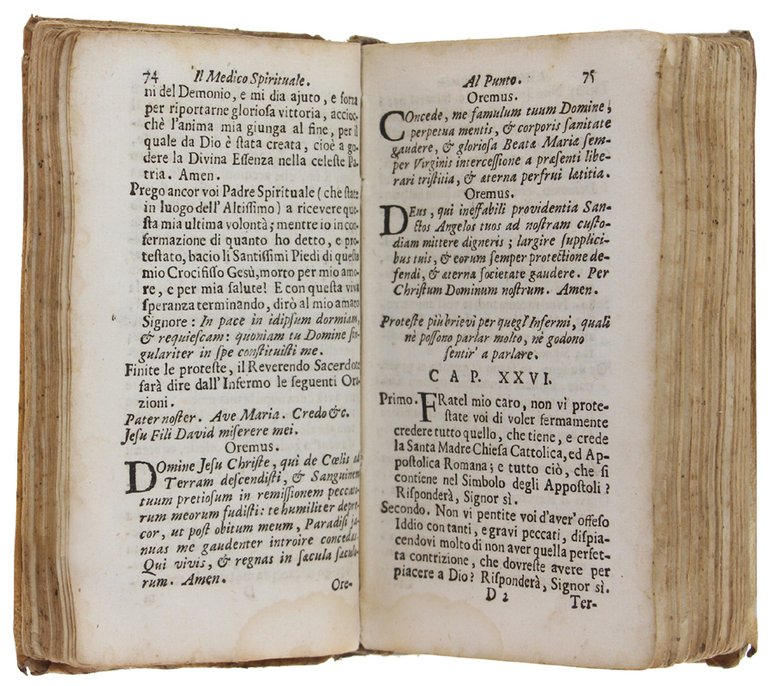 74 Il Medico Spirituale.
ni del Demonio, e mi dia ajuto, e forza
per riportarne gloriosa vittoria, accioc-
chè l'anima mia giunga al fine, per il
quale da Dio è ſtata creata, cioè a go-
dere la Divina Eſſenza nella celeſte Pa-
tria. Amen.
Prego ancor voi Padre Spirituale (che ſtate
in luogo dell' Altiſſimo) a ricevere que-
ſta mia ultima volontà; mentre io in con-
fermazione di quanto ho detto, e pro-
teſtato, bacio li Santiſſimi Piedi di queſto
mio Crocifiſſo Gesù, morto per mio amo-
re, e per mia ſalute! E con queſta viva
ſperanza terminando, dirò al mio amato
Signore: In pace in idipſum dormiam,
& requieſcam: quoniam tu Domine ſin-
gulariter in ſpe conſtituiſti me.
Finite le proteſte, il Reverendo Sacerdote
farà dire dall'Infermo le ſeguenti Ora-
zioni.
Pater noſter. Ave Maria. Credo &c.
Jeſu Fili David miſerere mei.
Oremus.
DOmine Jeſu Chriſte, qui de Cœlis ad
Terram deſcendiſti, & Sanguinem
tuum pretioſum in remiſſionem pecca-
rum meorum fudiſti: te humiliter depre-
cor, ut poſt obitum meum, Paradiſi ja-
nuas me gaudenter introire concedas.
Qui vivis, & regnas in ſæcula ſæculo-
rum. Amen.
Ore-
Al Punto. 75
Oremus.
COncede, me famulum tuum Domine,
perpetua mentis, & corporis ſanitate
gaudere, & glorioſa Beatæ Mariæ ſem-
per Virginis interceſſione a præſenti libe-
rari triſtitia, & æterna perfrui lætitia.
Oremus.
DEus, qui ineffabili providentia San-
ctos Angelos tuos ad noſtram cuſto-
diam mittere digneris; largire ſupplici-
bus tuis, & eorum ſemper protectione de-
fendi, & æterna ſocietate gaudere. Per
Chriſtum Dominum noſtrum. Amen.
Proteſte più brievi per quegl'Infermi, quali
nè poſſono parlar molto, nè godono
ſentir' a parlare.
CAP. XXVI.
Primo. FRatel mio caro, non vi prote-
ſtate voi di voler fermamente
credere tutto quello, che tiene, e crede
la Santa Madre Chieſa Cattolica, ed Ap-
poſtolica Romana; e tutto ciò, che ſi
contiene nel Simbolo degli Appoſtoli?
Riſponderà, Signor sì.
Secondo. Non vi pentite voi d'aver' offeſo
Iddio con tanti, e gravi peccati, diſpia-
cendovi molto di non aver quella perfet-
ta contrizione, che dovreſte avere per
piacere a Dio? Riſponderà, Signor sì.
D 2 Ter-